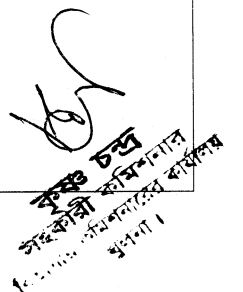 কৃষ্ণ চন্দ্র
সহকারী কমিশনার
কমিশনারের কার্যালয়
খুলনা।